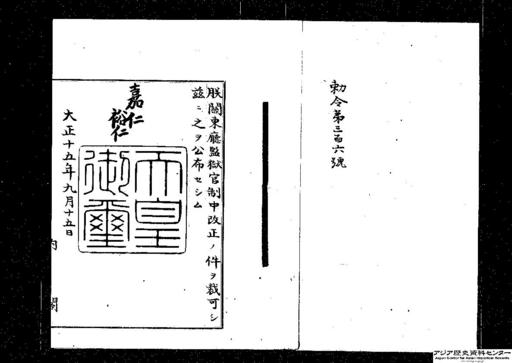 勅令第三百六號
朕關東廳監獄官制中改正ノ件ヲ裁可シ
茲ニ之ヲ公布セシム
嘉仁
裕仁
天皇御璽
大正十五年九月十五日
内閣
アジア歴史資料センター
Japan Center for Asian Historical Records